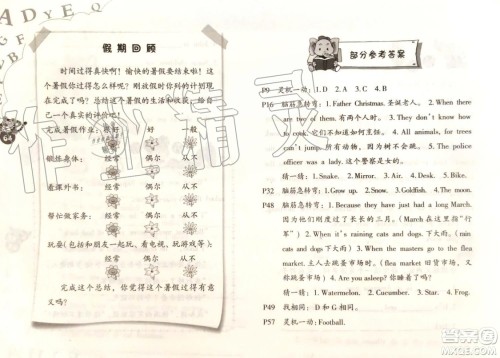 假期回顾
时间过得真快啊！愉快的暑假要结束啦！在
这个暑假你过得怎么样呢？刚放假时你列的计划现
在完成了吗？总结总结暑假的生活和收获，给自己
一个真实的评价吧！
完成暑假作业：很好 好 一般
锻炼身体： 经常 偶尔 从不
看课外书： 经常 偶尔 从不
帮忙做家务： 经常 偶尔 从不
玩耍（包括和朋友一起玩、看电视、玩游戏等）：
经常 偶尔 从不
完成这个总结，你觉得这个暑假你过得有意
义吗？
64
部分参考答案
P9 灵机一动：1. D 2. A 3. C 4. B
P16 脑筋急转弯：1. Father Christmas. 圣诞老人。 2. When there
are two of them. 有两个人时。 3. They don't know how
to cook. 它们不知道如何烹饪。 4. All animals, for trees
can't jump. 所有动物，因为树不会跳。 5. The police
officer was a lady. 这个警察是女的。
猜一猜：1. Snake. 2. Mirror. 3. Air. 4. Desk. 5. Bike.
P32 脑筋急转弯：1. Grow up. 2. Snow. 3. Goldfish. 4. The moon.
P48 脑筋急转弯：1. Because they have just had a long March.
因为他们刚度过了长长的三月。(March 在英语里指“行
军”) 2. When it's raining cats and dogs. 下大雨时。(rain
cats and dogs 下大雨) 3. When the masters go to the flea
market. 主人去跳蚤市场时。(flea market 旧货市场，又
称跳蚤市场) 4. Are you asleep? 你睡着了吗？
猜一猜：1. Watermelon. 2. Cucumber. 3. Star. 4. Frog.
P49 我相同：D 和 G 相同。
P57 灵机一动：Football.
作业精灵